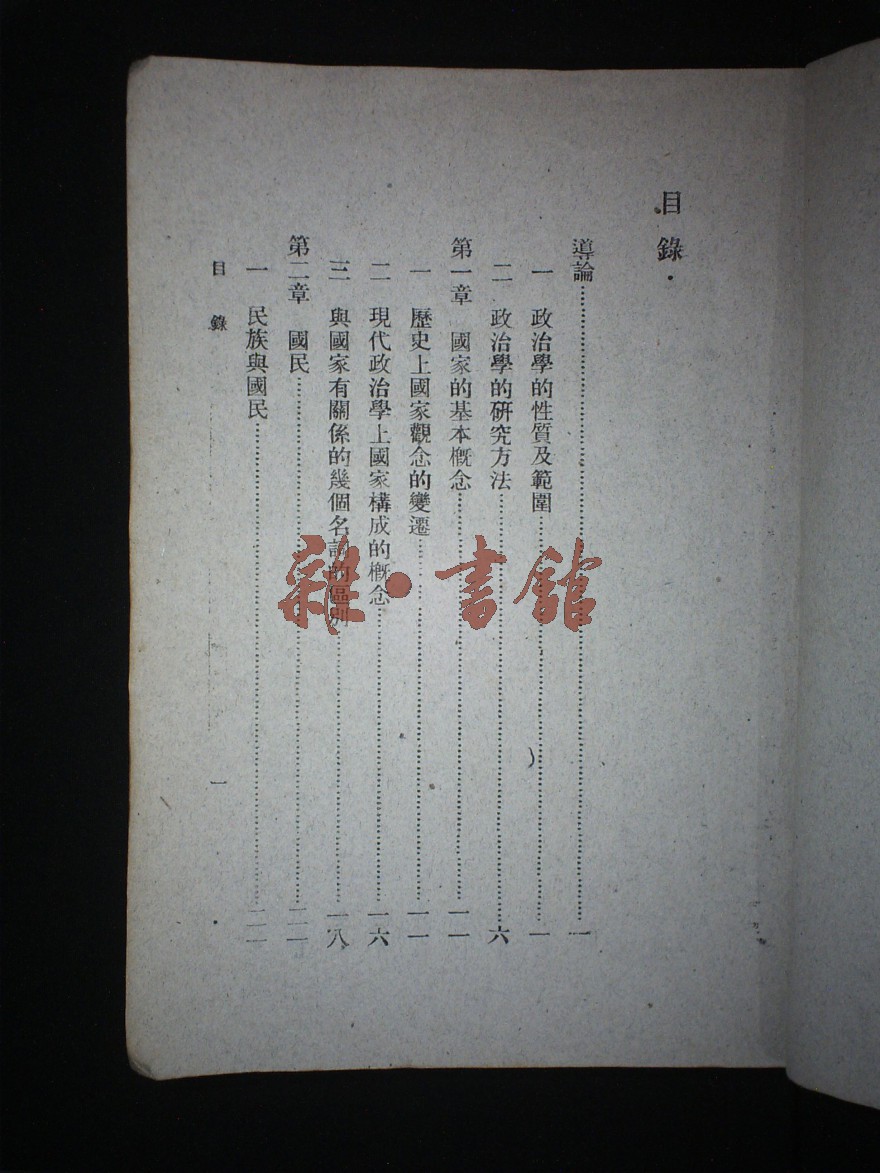 目錄
導論……一
一 政治學的性質及範圍……一
二 政治學的研究方法……六
第一章 國家的基本概念……一一
一 歷史上國家觀念的變遷……一一
二 現代政治學上國家構成的概念……一六
三 與國家有關係的幾個名詞的區別……一八
第二章 國民……二一
一 民族與國民……二一
目錄 一
雜·書館